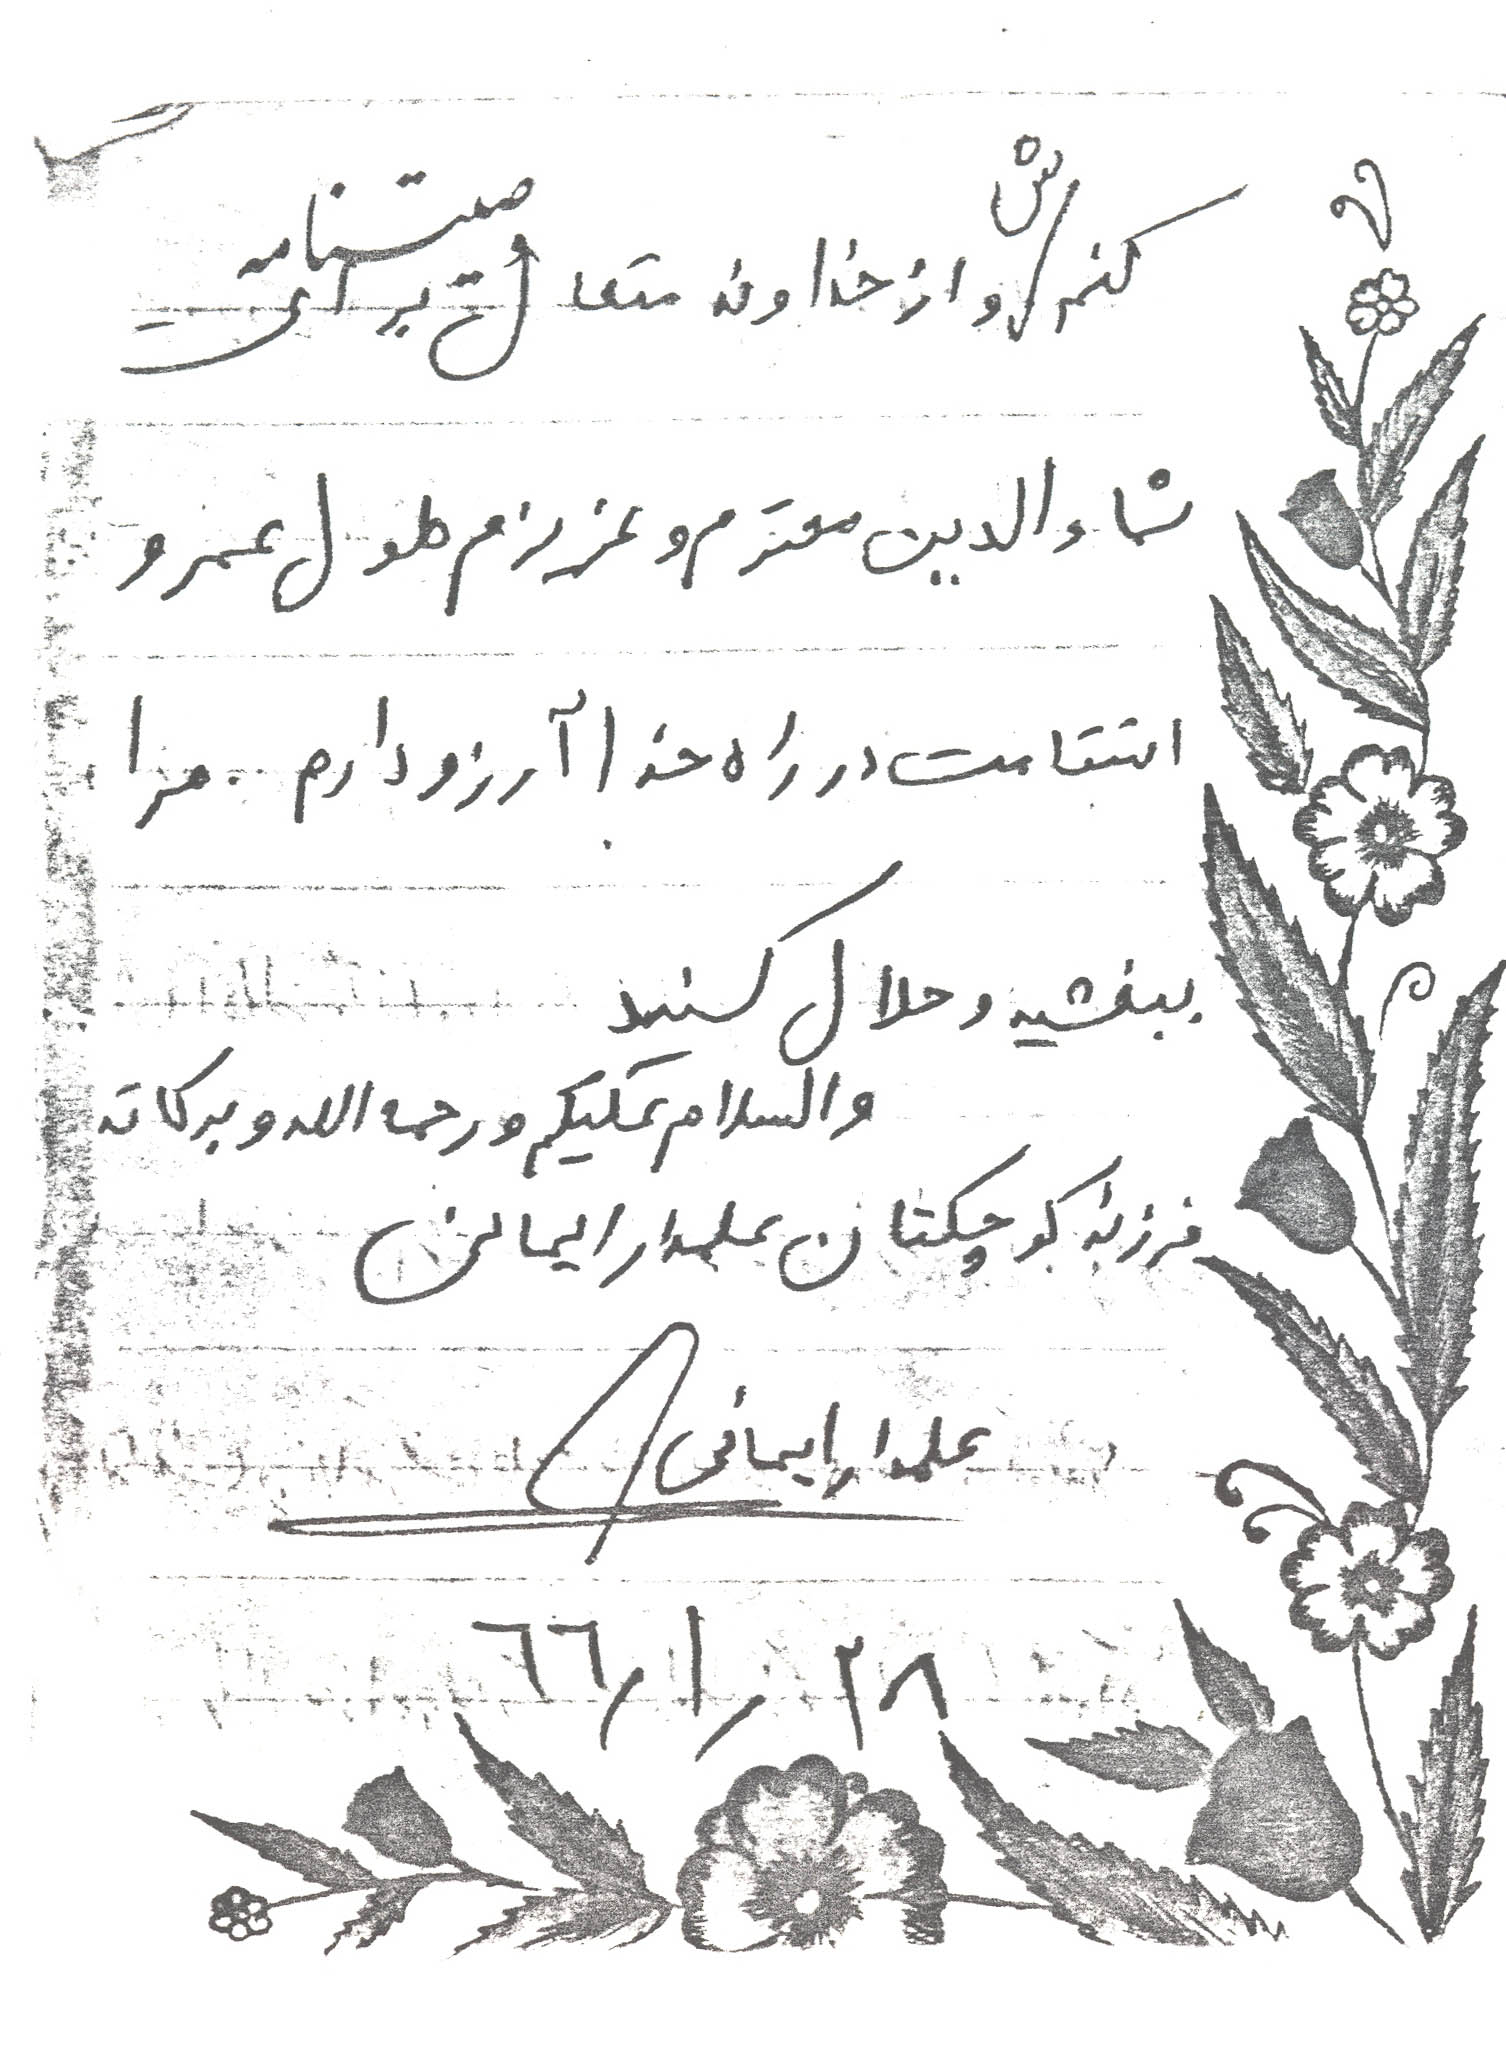 وصیتنامه
کنم و از خداوند متعال برای
شما والدین محترم و عزیزم طول عمر و
استقامت در راه خدا آرزو دارم. مرا
ببخشید و حلال کنید
والسلام علیکم و رحمه الله و برکاته
فرزند کوچکتان علمدار ایمانی
علمدار ایمانی
۲۸/۱/۶۶